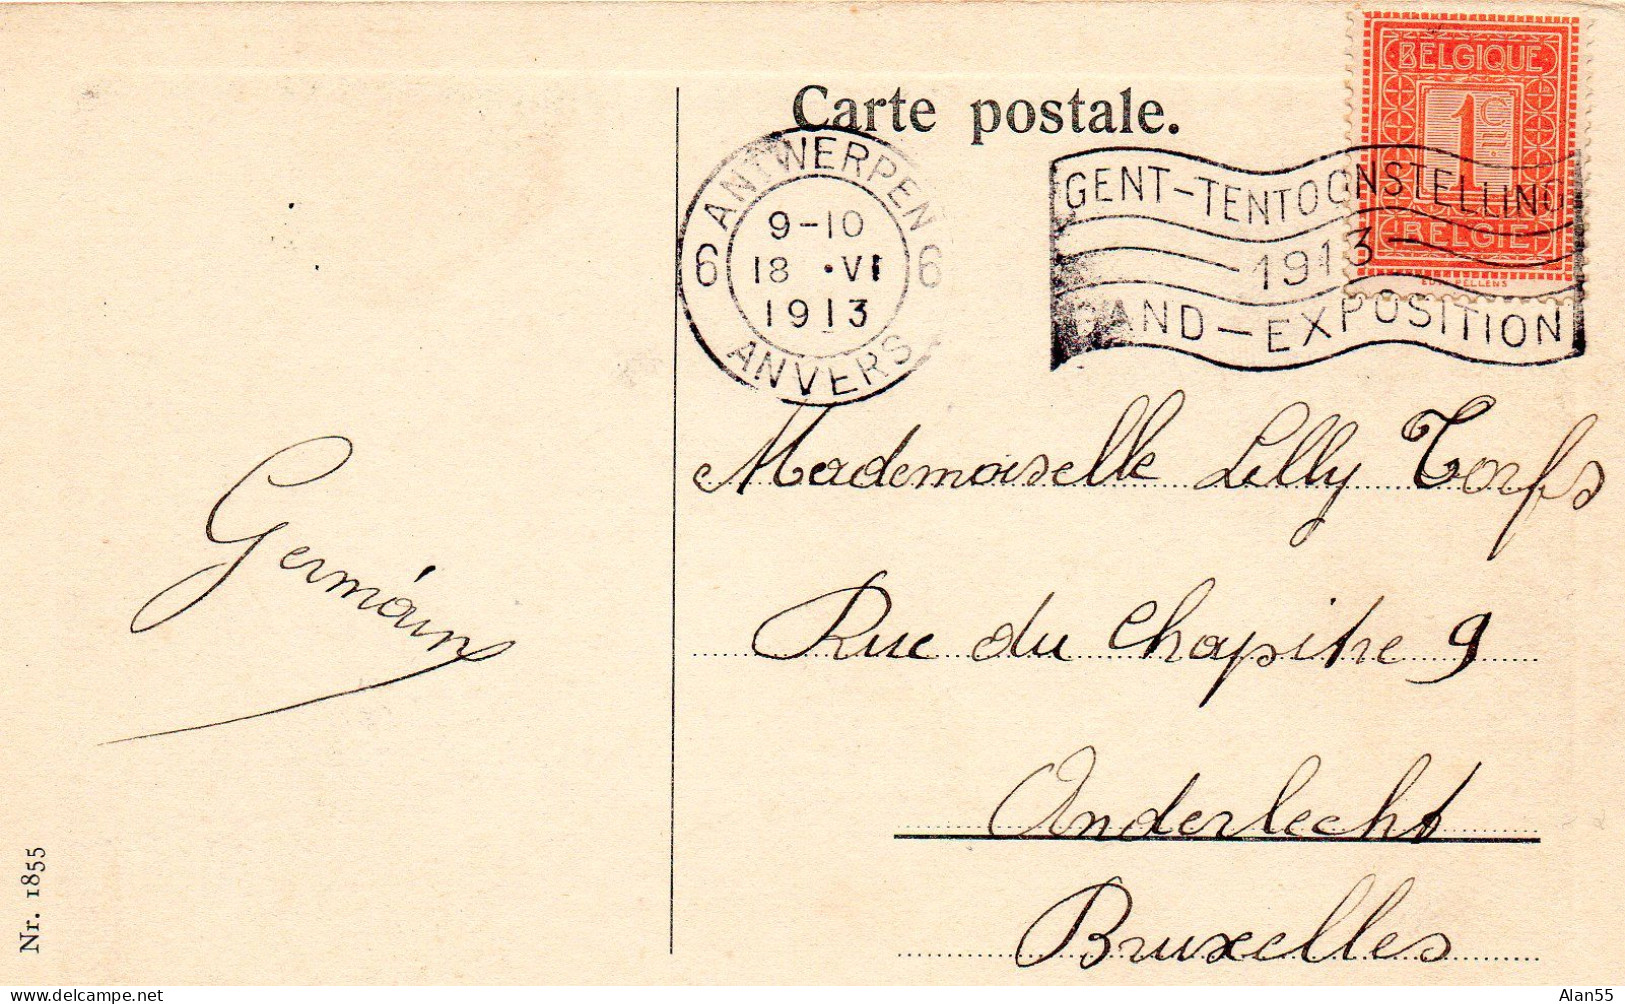 Carte postale.
BELGIQUE
1 CME
BELGIË
ED. PELLENS
ANTWERPEN
9-10
6 18 • VI 6
1913
ANVERS
GENT-TENTOONSTELLING
1913
GAND-EXPOSITION
Mademoiselle Lilly Torfs
Rue du Chapitre 9
Anderlecht
Bruxelles
Germain
Nr. 1855
delcampe.net
Alan55